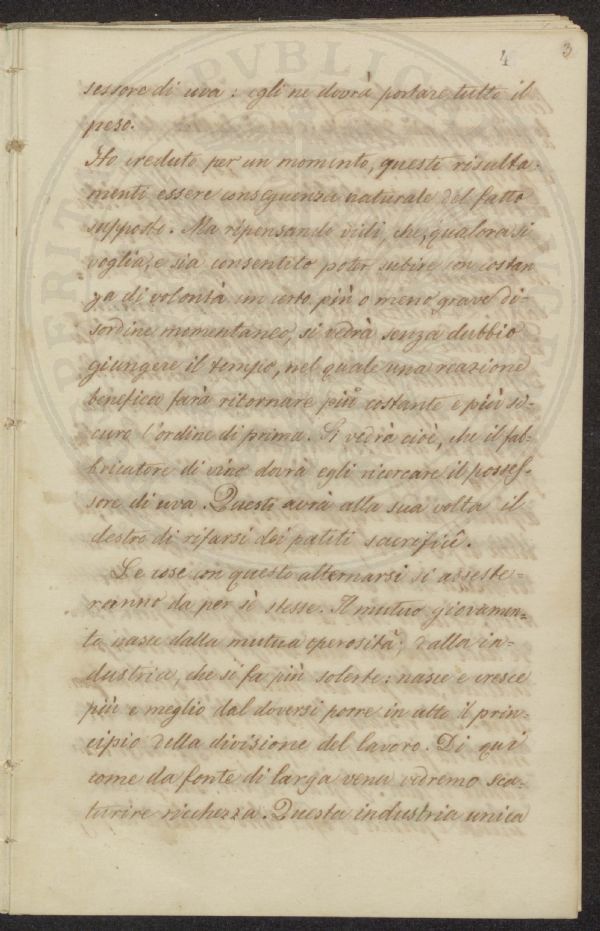 4 3
sessore di uva: egli ne dovrà portare tutto il
peso.
Ho creduto per un momento, questi risulta-
menti essere conseguenza naturale del fatto
supposto. Ma ripensando vidi, che, qualora si
voglia, e sia consentito poter subire con costan
za di volontà un certo più o meno grave di-
sordine momentaneo, si vedrà senza dubbio
giungere il tempo, nel quale una reazione
benefica farà ritornare più costante e più si-
curo l'ordine di prima. Si vedrà cioè, che il fab-
bricatore di vino dovrà egli ricercare il posses-
sore di uva. Questi avrà alla sua volta il
destro di rifarsi dei patiti sacrificî.
Le cose con questo alternarsi si asseste-
ranno da per sè stesse. Il mutuo giovamen-
to nasce dalla mutua operosità; dalla in-
dustria, che si fa più solerte: nasce e cresce
più e meglio dal doversi porre in atto il prin-
cipio della divisione del lavoro. Di qui
come da fonte di larga vena vedremo sca-
turire ricchezza. Questa industria unica